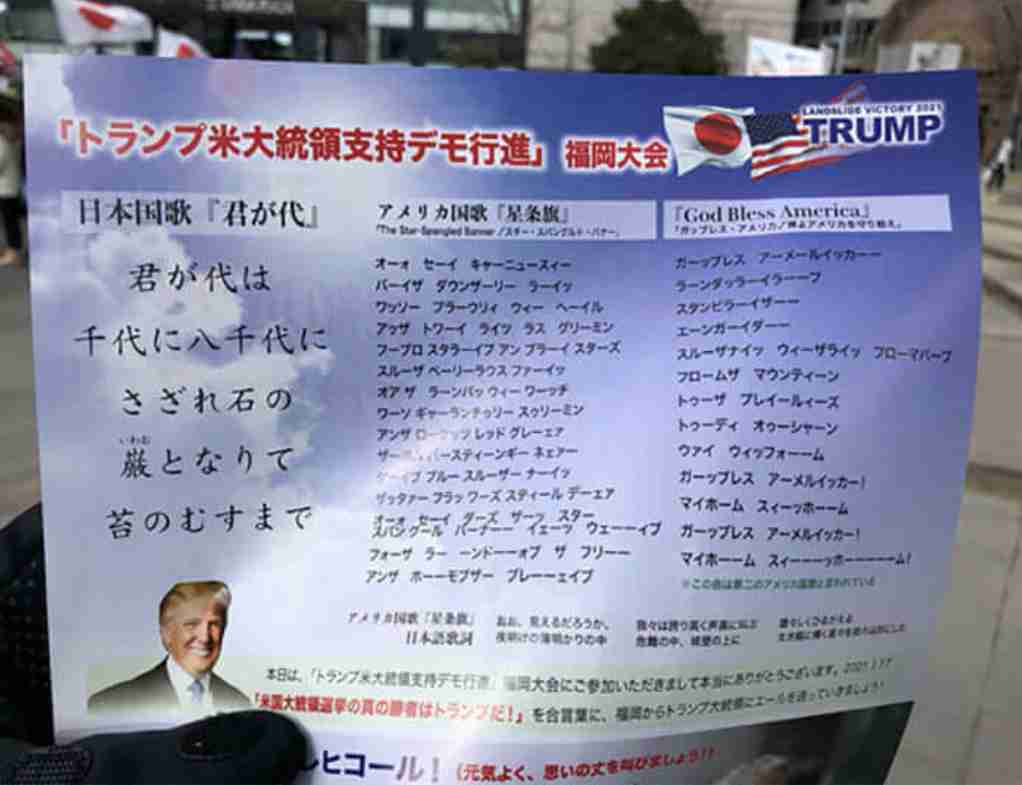 「トランプ米大統領支持デモ行進」 福岡大会
LANDSLIDE VICTORY 2021
TRUMP
日本国歌『君が代』
君が代は
千代に八千代に
さざれ石の
いわお
巌となりて
苔のむすまで
アメリカ国歌『星条旗』
「The Star-Spangled Banner /スター・スパングルド・バナー」
オーォ セーイ キャーニュースィー
バーイザ ダウンザーリー ラーイッ
ワッソー プラーウリィ ウィー ヘーイル
アッザ トワーイ ライツ ラス グリーミン
フーブロ スタラーイプ アン ブラーイ スターズ
スルーザ ペーリーラウス ファーイッ
オア ザ ラーンパッ ウィー ワーッチ
ワーソ ギャーランチゥリー スゥリーミン
アンザ ローケッツ レッド グレーェア
バースティーンギー ネェアー
ブルー スルーザー ナーイッ
ザッタァー フラッ ワーズ スティール デーェア
オーォ セーイ ダーズ ザーッ スター
スパングール バーナーー イェーツ ウェーーイブ
フォーザ ラー ーンドーーォブ ザ フリーー
アンザ ホーーモブザー ブレーーェイブ
『God Bless America』
「ガップレス・アメリカ/神よアメリカを守り給え」
ガーップレス アーメールイッカーー
ラーンダッラーイラーーブ
スタンビラーイザーー
エーンガーイダーー
スルーザナイッ ウィーザライッ フローマバーブ
フロームザ マウンティーン
トゥーザ プレイールィーズ
トゥーディ オゥーシャーン
ウァイ ウィッフォーーム
ガーップレス アーメルイッカー!
マイホーム スィーッホーーム
ガーップレス アーメルイッカー!
マイホーーム スィーーーッホーーーーーム!
※この曲は第二のアメリカ国歌と言われている
アメリカ国歌『星条旗』
日本語歌詞
おお、見えるだろうか、
夜明けの薄明かりの中
我々は誇り高く声高に叫ぶ
危難の中、城壁の上に
雄々しくひるがえる
本日は、「トランプ米大統領支持デモ行進」福岡大会にご参加いただきまして本当にありがとうございます。2021.1.17
「米国大統領選挙の真の勝者はトランプだ!」を合言葉に、福岡からトランプ大統領にエールを送っていきましょう!
レヒコール! (元気よく、思いの丈を叫びましょう!)